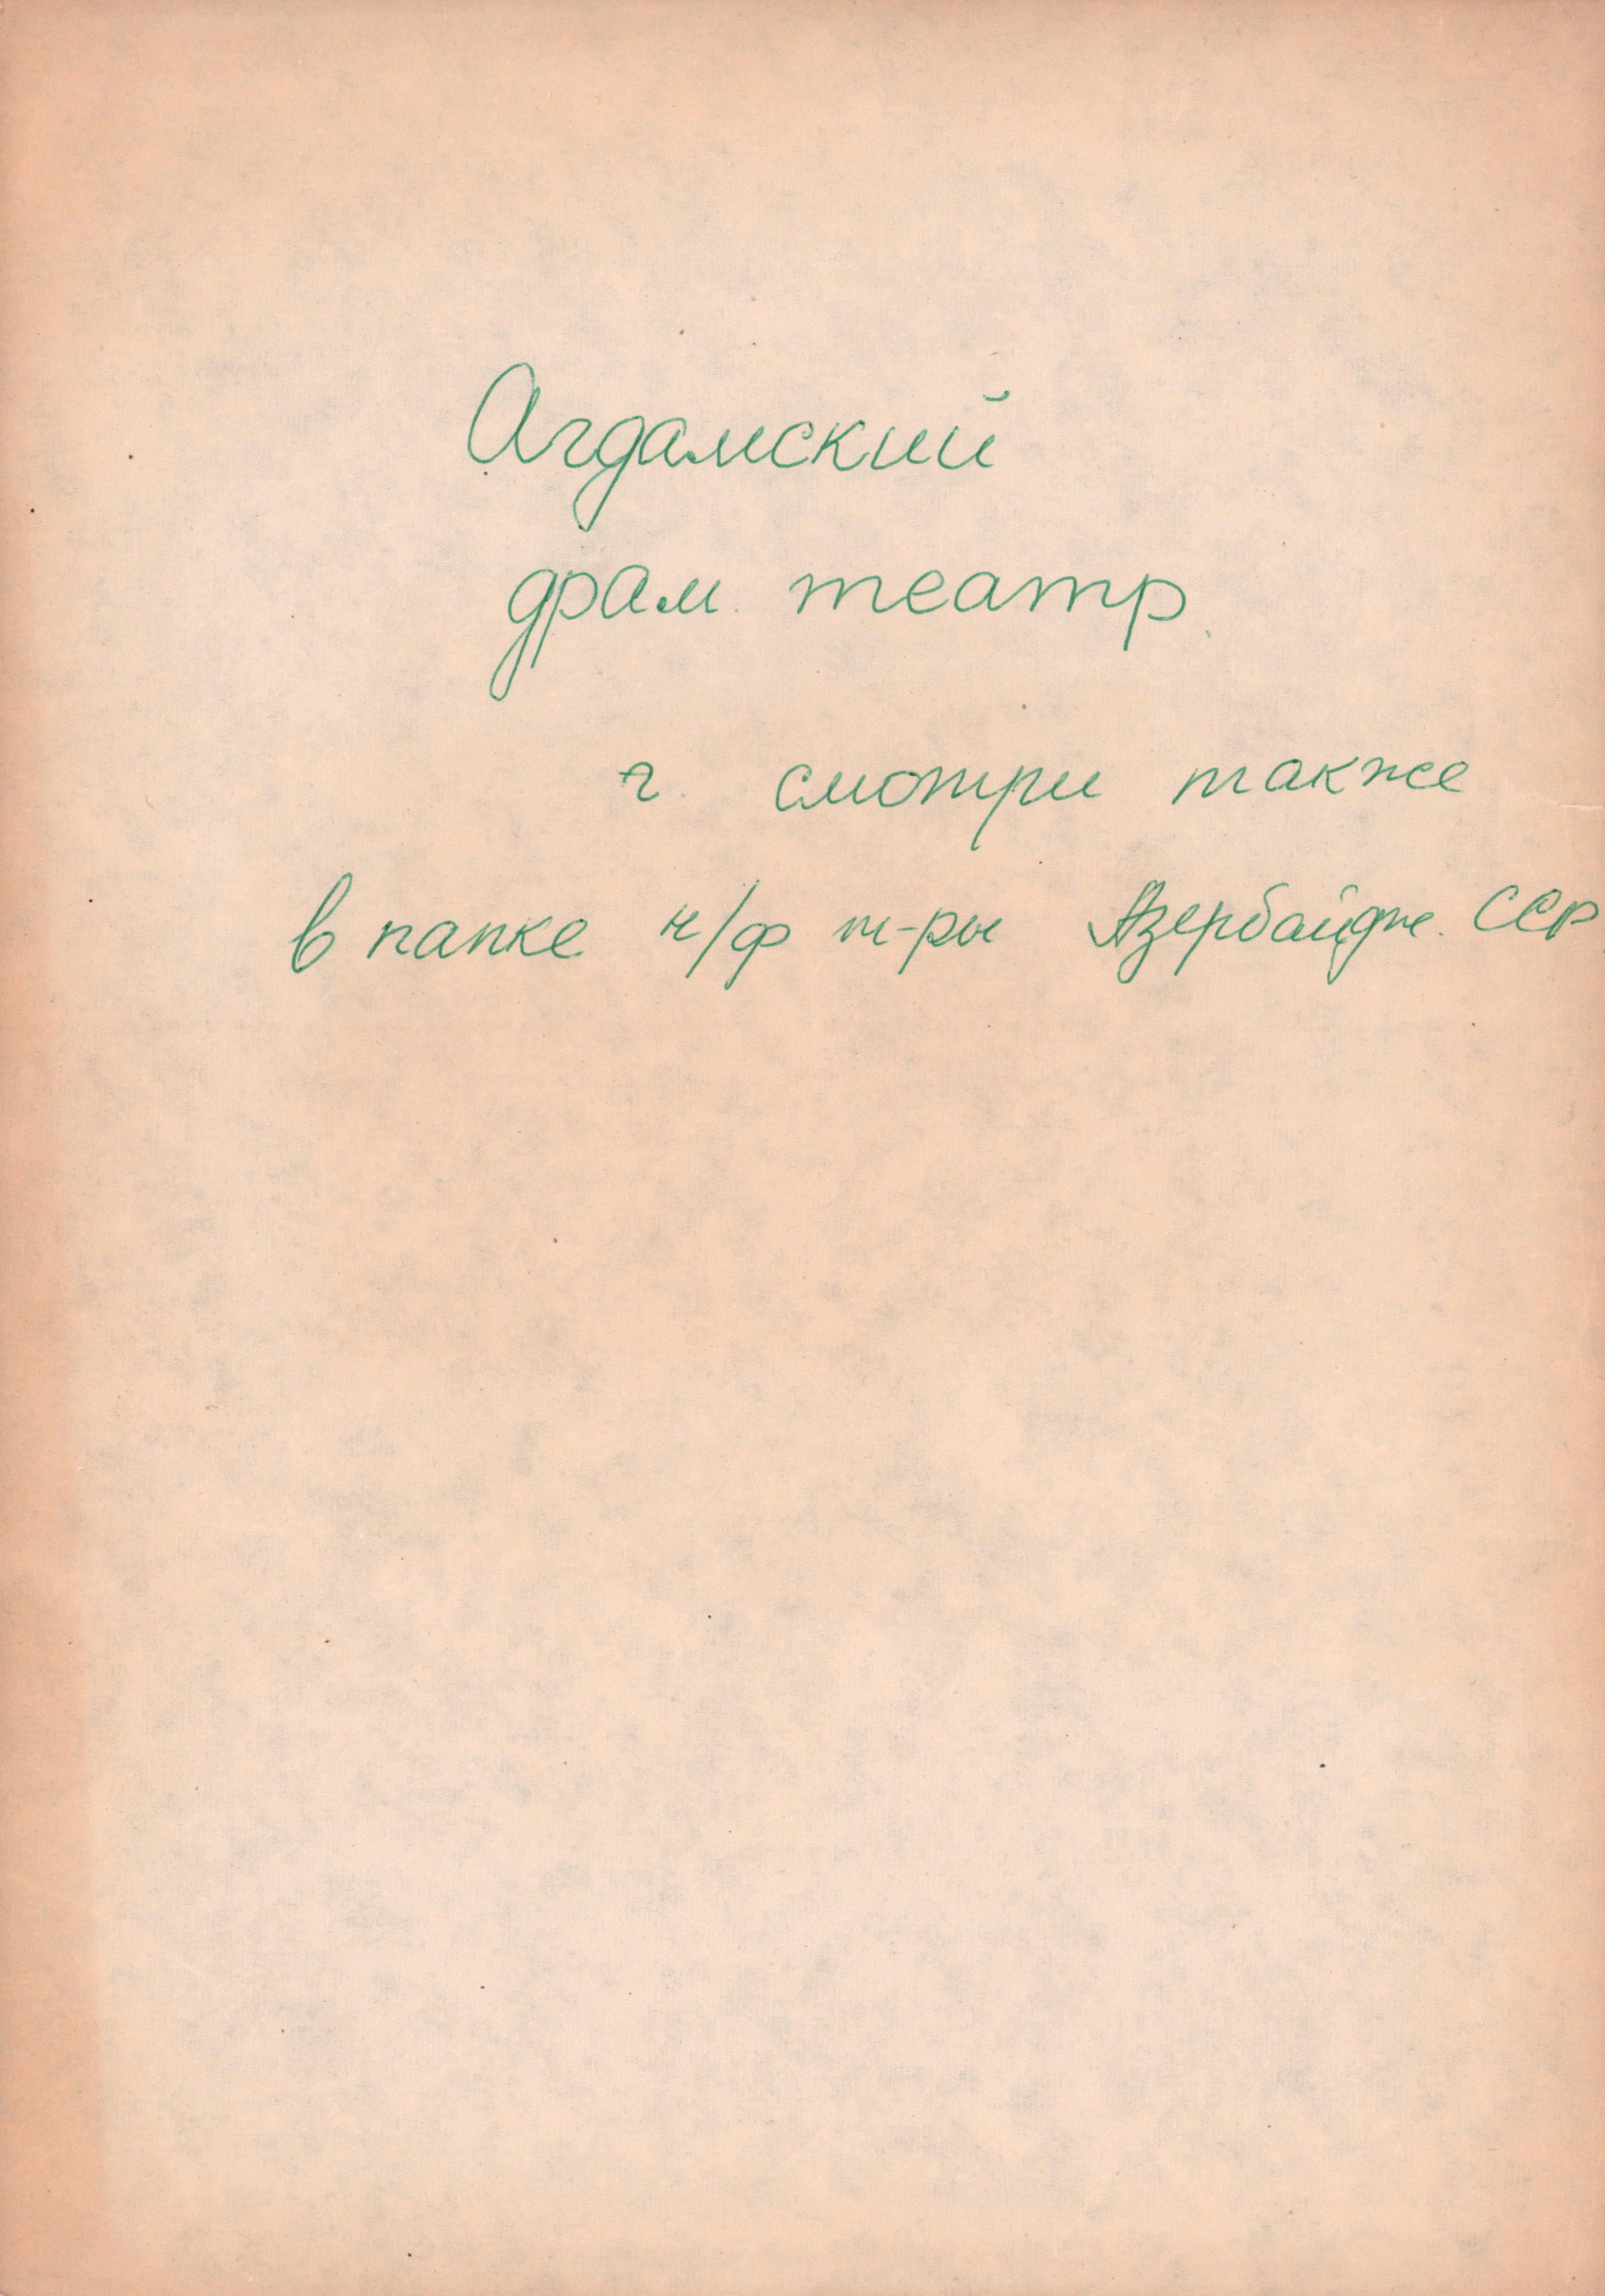 Агдамский
драм. театр.
г. смотри также
в папке н/ф т-ры Азербайдж. ССР